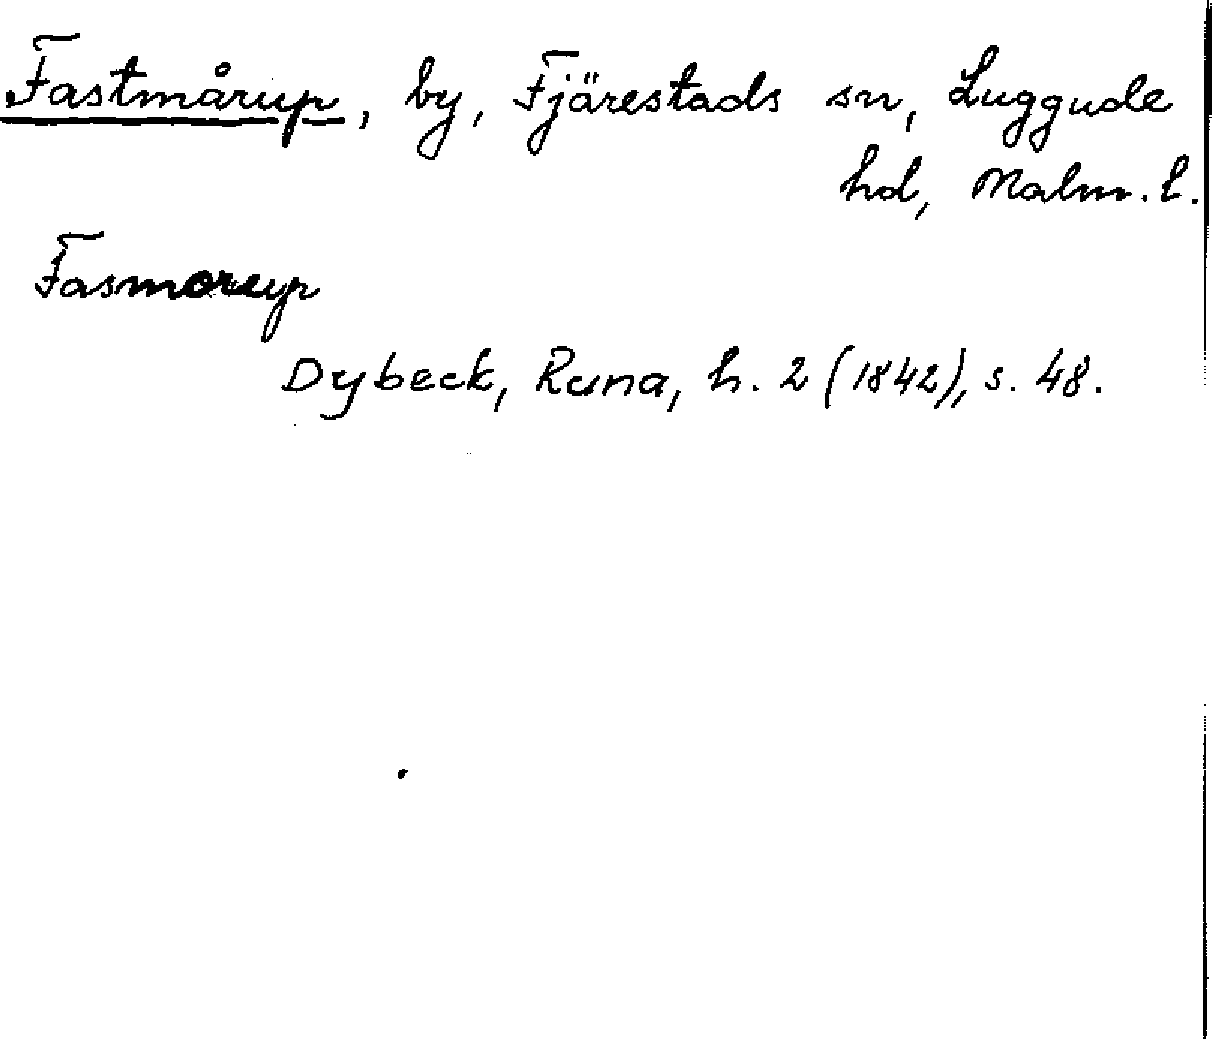 Fastmårup, by, Fjärestads sn, Luggude
hd, Malm. l.
Fasmorup
Dybeck, Runa, h. 2 (1842), s. 48.